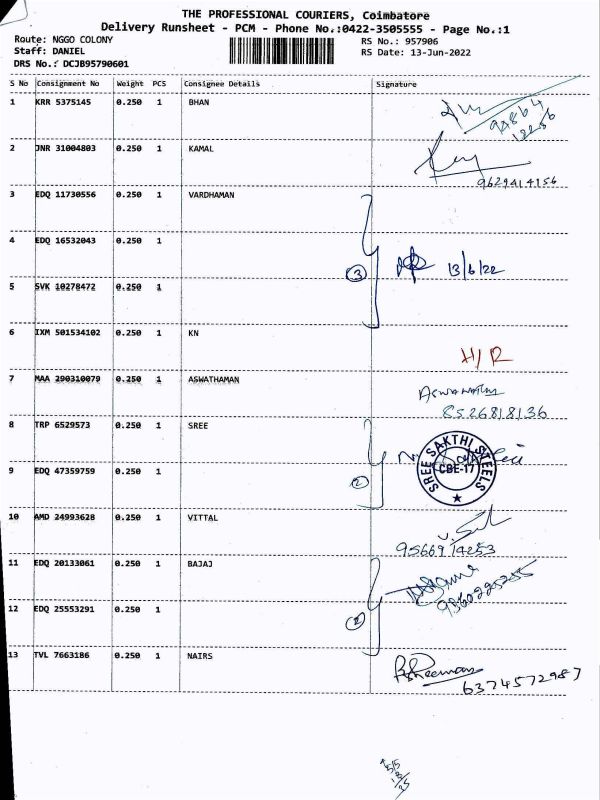 THE PROFESSIONAL COURIERS, Coimbatore
Delivery Runsheet - PCM - Phone No.:0422-3505555 - Page No.:1
Route: NGGO COLONY
RS No.: 957906
Staff: DANIEL
RS Date: 13-Jun-2022
DRS No.: DCJB95790601
S No Consignment No Weight PCS Consignee Details Signature
1 KRR 5375145 0.250 1 BHAN
2 JNR 31004803 0.250 1 KAMAL
9629414156
3 EDQ 11730556 0.250 1 VARDHAMAN
4 EDQ 16532043 0.250 1
3 13/6/22
5 SVK 10278472 0.250 1
6 IXM 501534102 0.250 1 KN
H/R
7 MAA 290310079 0.250 1 ASWATHAMAN
8526818136
8 TRP 6529573 0.250 1 SREE
SREE SAKTHI STEELS
CBE-17
9 EDQ 47359759 0.250 1
2
10 AMD 24993628 0.250 1 VITTAL
9566914253
11 EDQ 20133061 0.250 1 BAJAJ
12 EDQ 25553291 0.250 1
2
13 TVL 7663186 0.250 1 NAIRS
6374572987